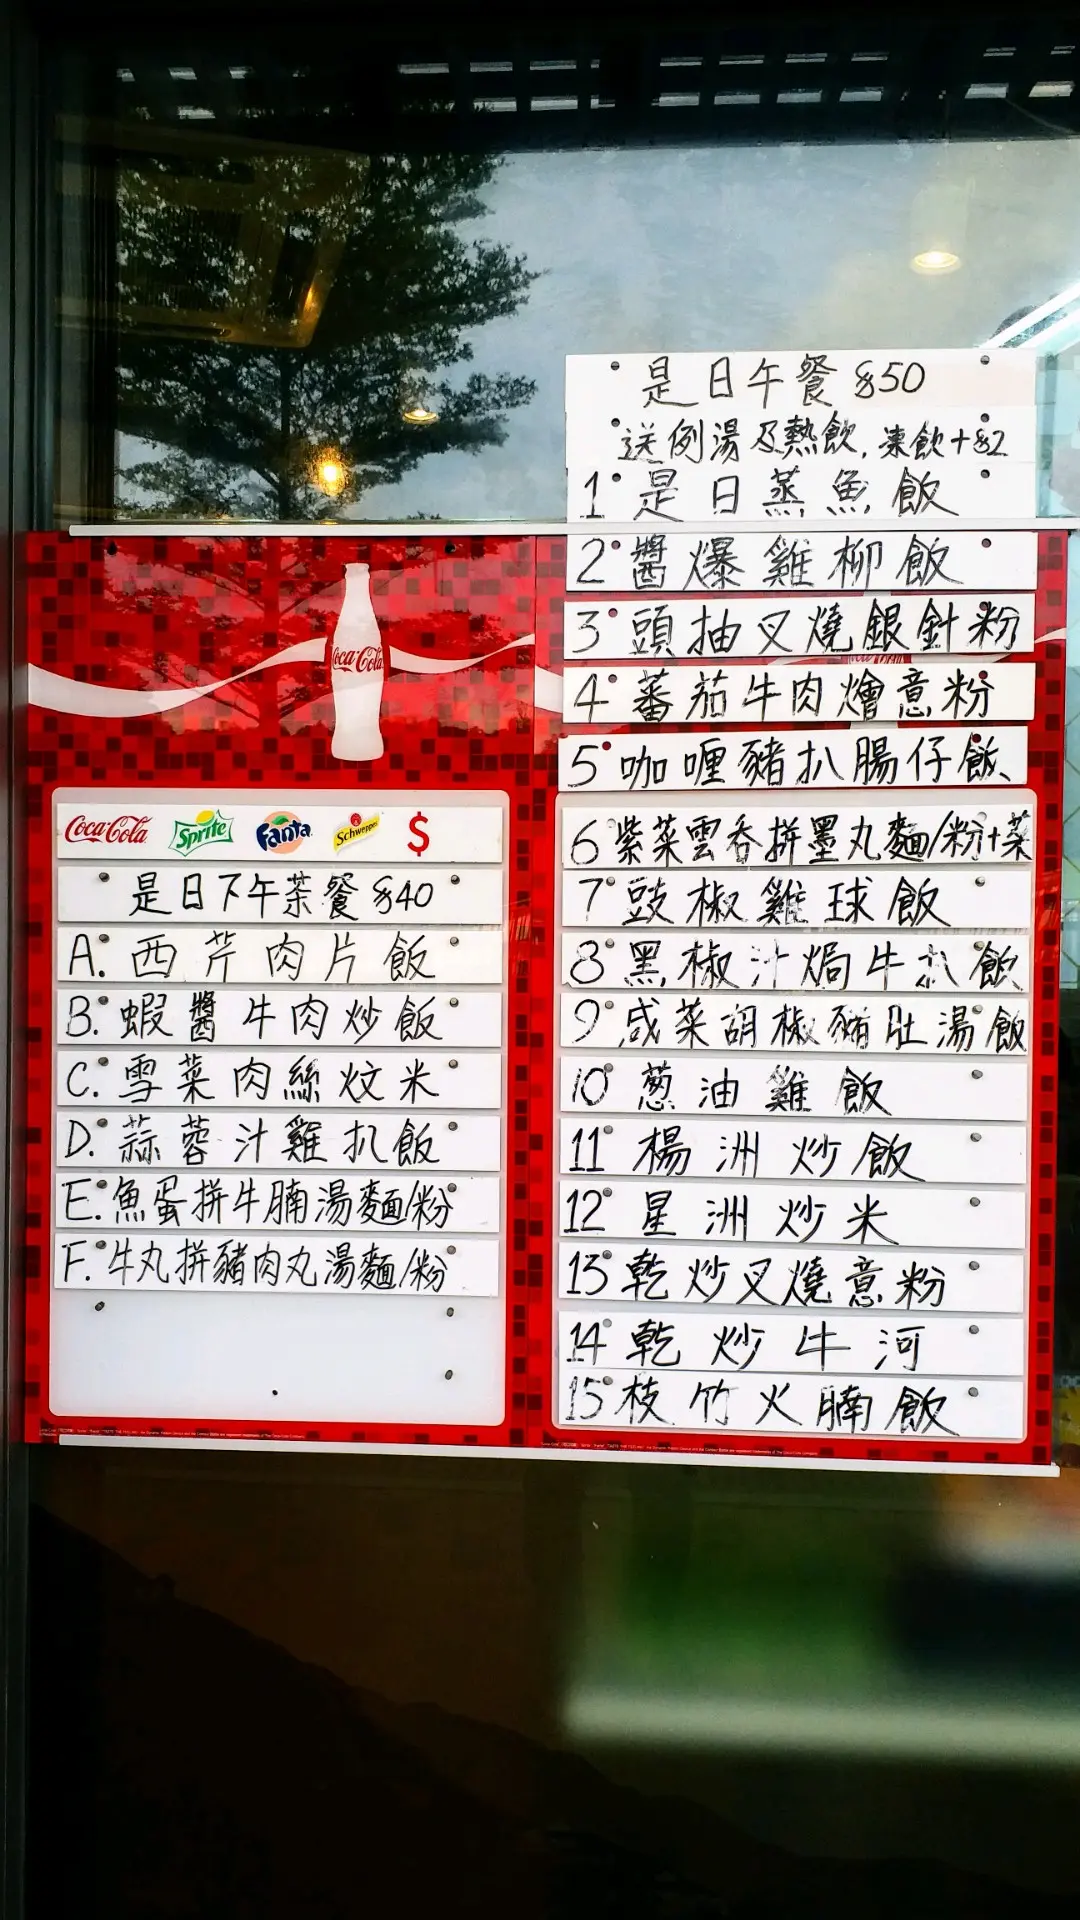 Coca-Cola
Coca-Cola Sprite Fanta Schweppes $
是日下午茶餐 $40
A. 西芹肉片飯
B. 蝦醬牛肉炒飯
C. 雪菜肉絲炆米
D. 蒜蓉汁雞扒飯
E. 魚蛋拼牛腩湯麵/粉
F. 牛丸拼豬肉丸湯麵/粉
是日午餐 $50
送例湯及熱飲, 凍飲+$2
1 是日蒸魚飯
2 醬爆雞柳飯
3 頭抽叉燒銀針粉
4 蕃茄牛肉燴意粉
5 咖喱豬扒腸仔飯
6 紫菜雲吞拼墨丸麵/粉+菜
7 豉椒雞球飯
8 黑椒汁焗牛扒飯
9 咸菜胡椒豬肚湯飯
10 葱油雞飯
11 楊洲炒飯
12 星洲炒米
13 乾炒叉燒意粉
14 乾炒牛河
15 枝竹火腩飯